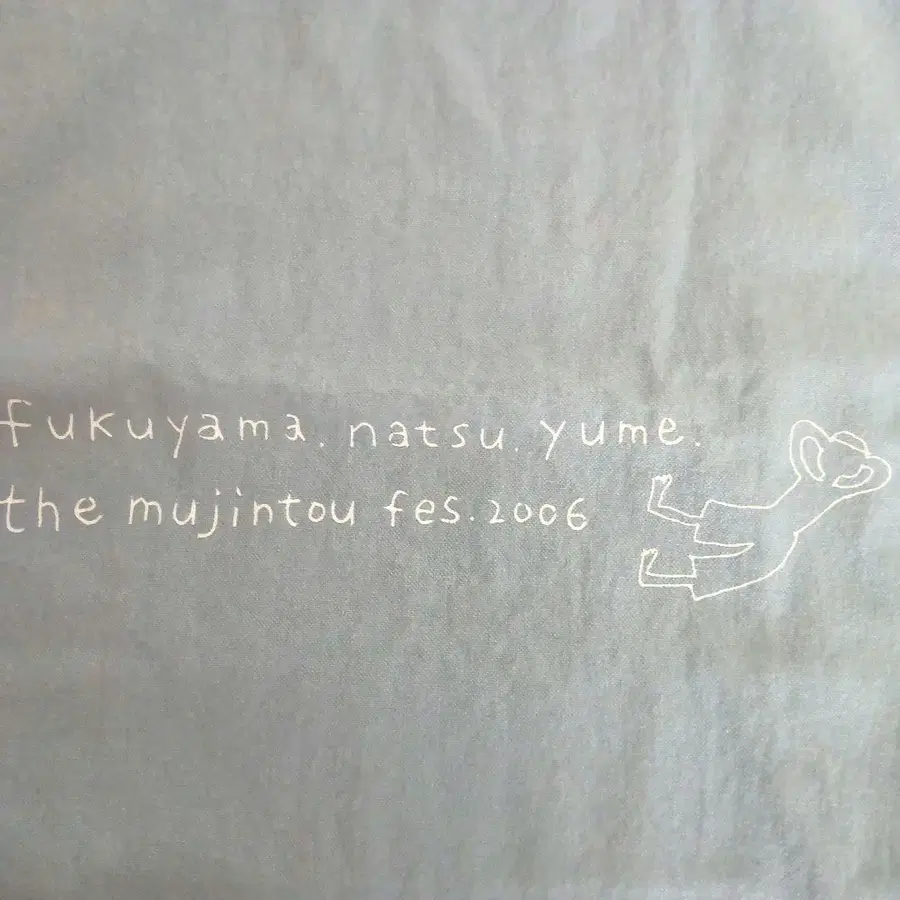 fukuyama. natsu. yume.
the mujintou fes. 2006